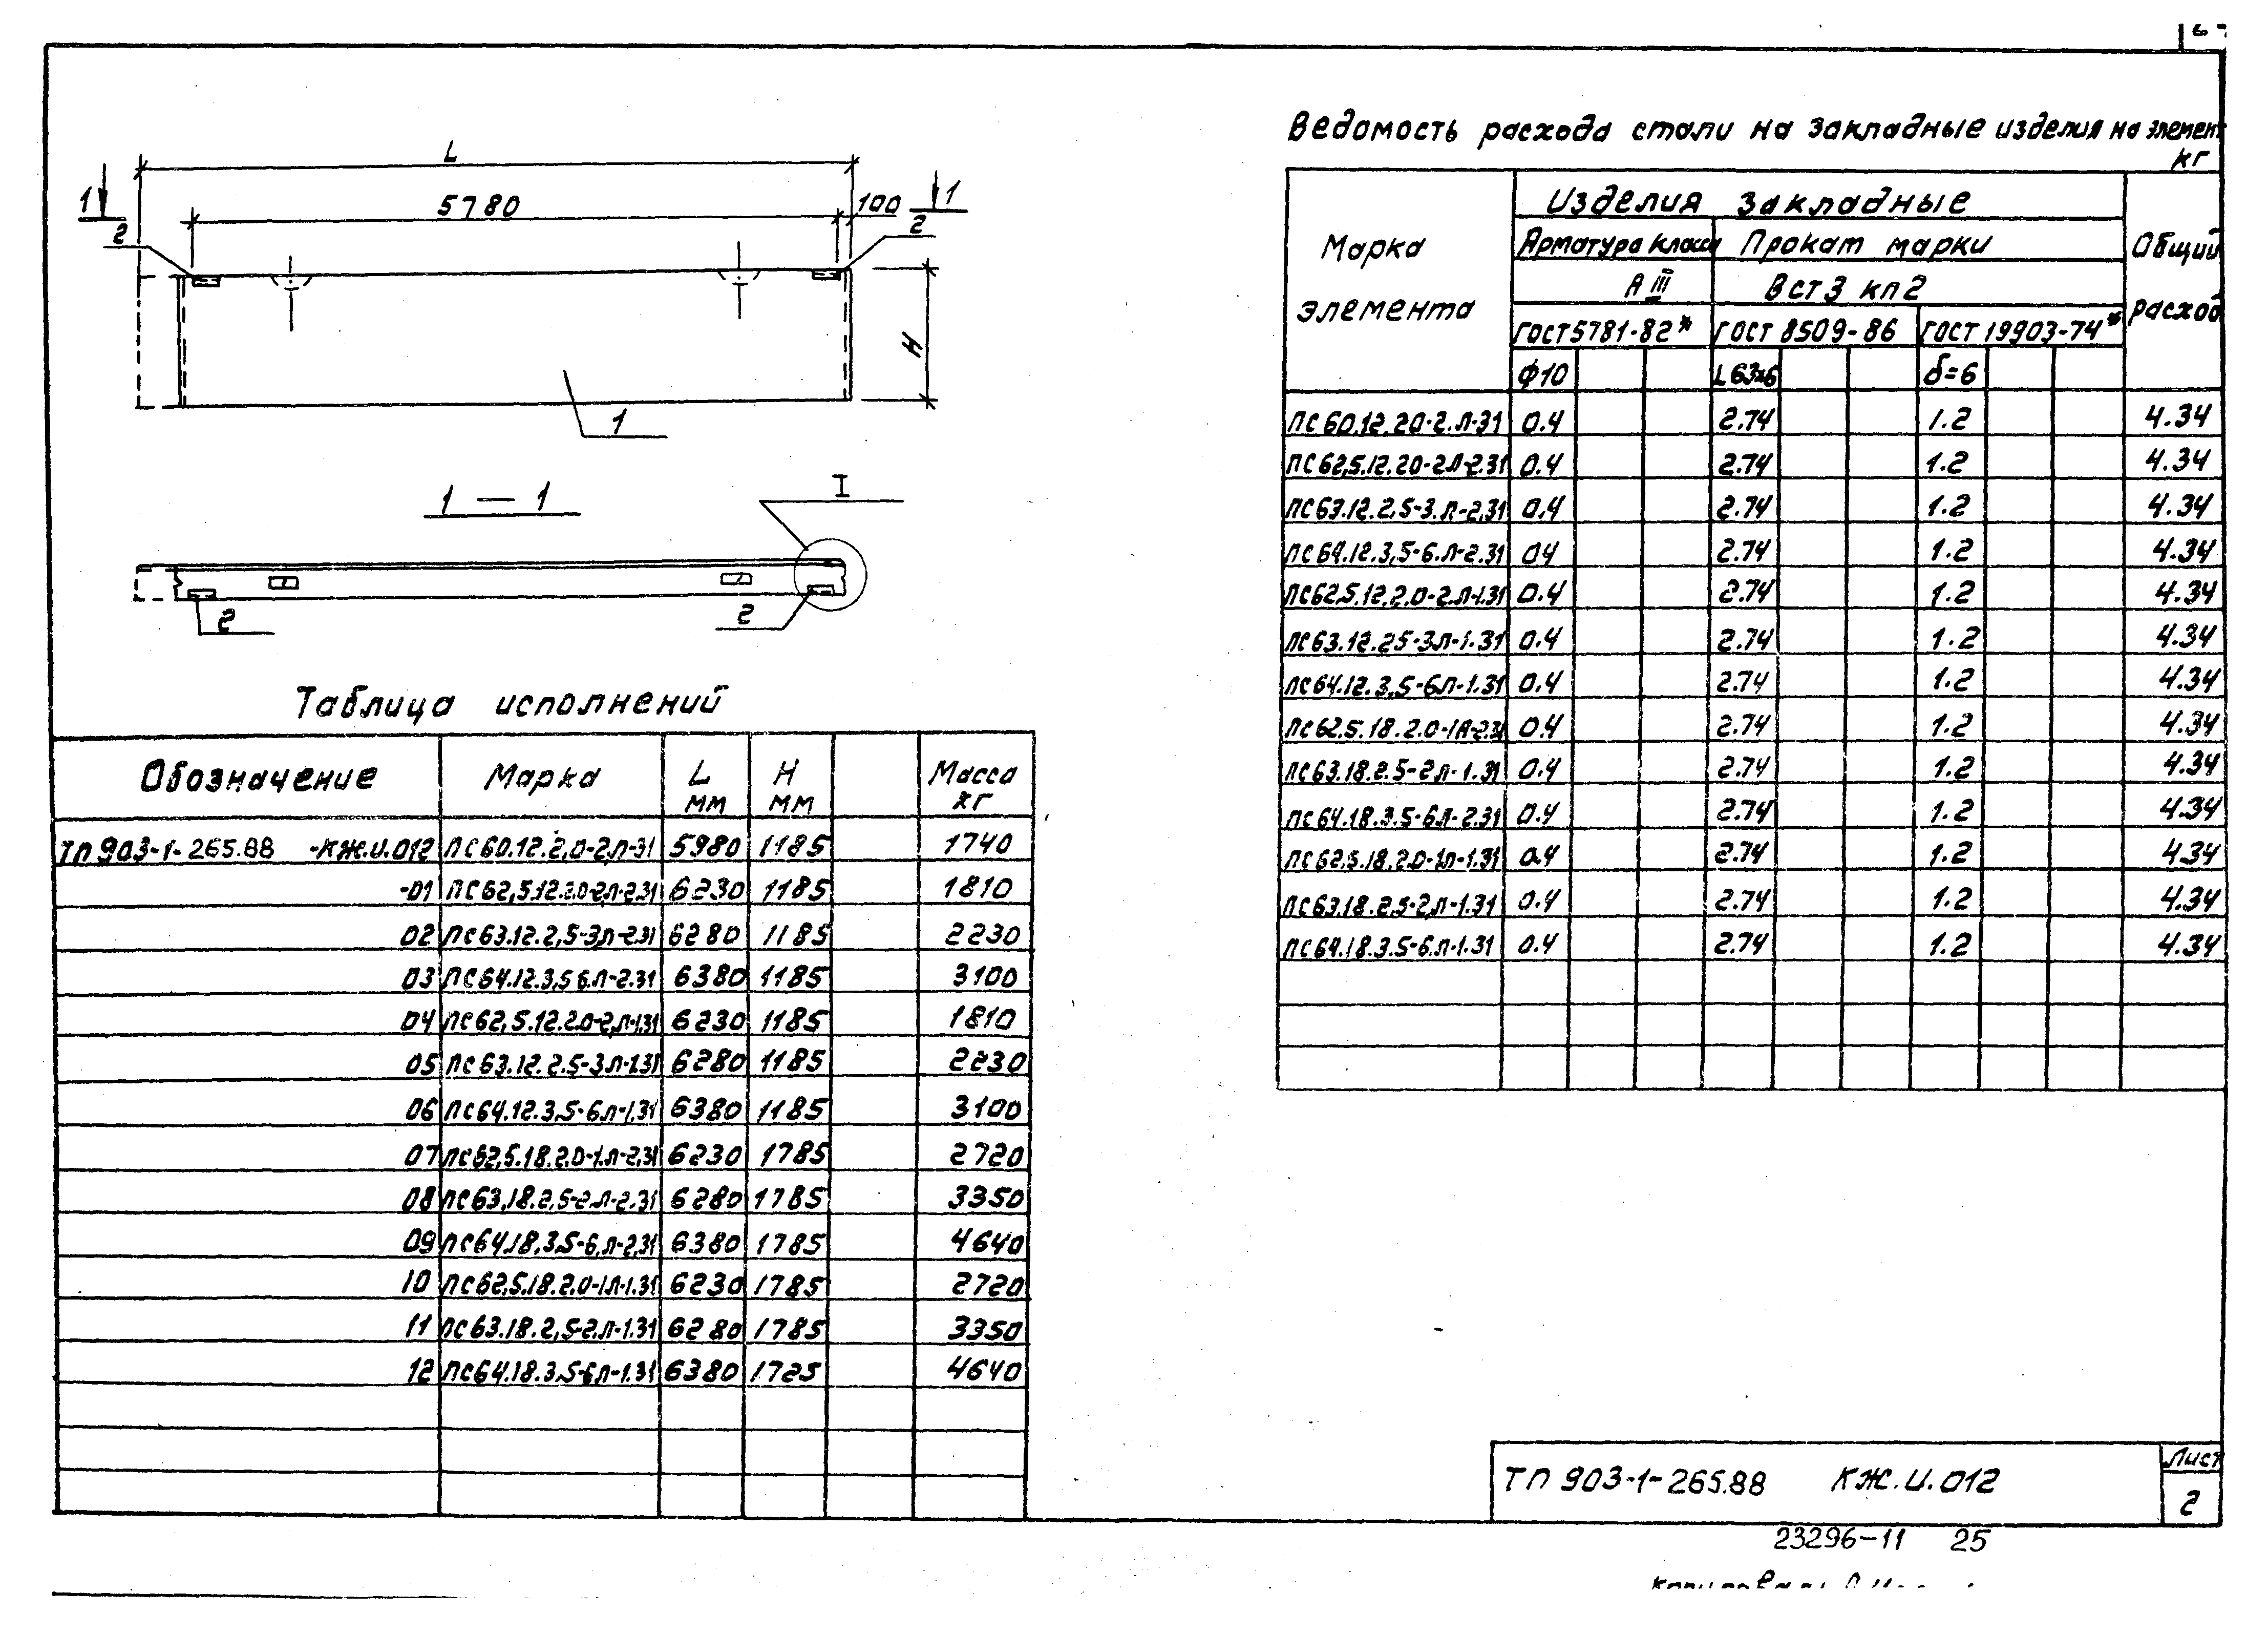 L
5780
100
1
1
2
2
H
1
1 — 1
I
2
2
Таблица исполнений
Обозначение Марка L мм H мм Масса кг
ТП 903-1-265.88 -КЖ.И.012 ПС60.12.2,0-2,Л-31 5980 1185 1740
-01 ПС62,5.12.2.0-2Л-2.31 6230 1185 1810
02 ПС63.12.2,5-3Л-2.31 6280 1185 2230
03 ПС64.12.3,5 6.Л-2.31 6380 1185 3100
04 ПС62,5.12.2.0-2,Л-1.31 6230 1185 1810
05 ПС63.12.2.5-3Л-1.31 6280 1185 2230
06 ПС64.12.3,5-6Л-1.31 6380 1185 3100
07 ПС62,5.18.2.0-1.Л-2,31 6230 1785 2720
08 ПС63,18.2,5-2.Л-2.31 6280 1785 3350
09 ПС64.18,3.5-6,Л-2,31 6380 1785 4640
10 ПС62,5.18.2.0-1Л-1.31 6230 1785 2720
11 ПС63.18.2,5-2.Л-1.31 6280 1785 3350
12 ПС64.18.3.5-6Л-1.31 6380 1725 4640
Ведомость расхода стали на закладные изделия на элемент
кг
Марка элемента
Изделия закладные
Общий расход
Арматура класса Прокат марки
А III Вст3 кп2
ГОСТ5781-82* ГОСТ 8509-86 ГОСТ 19903-74*
ф10 L63х6 δ=6
ПС60.12.20-2.Л-31 0.4 2.74 1.2 4.34
ПС62,5.12.20-2Л-2.31 0.4 2.74 1.2 4.34
ПС63.12.2,5-3.Л-2,31 0.4 2.74 1.2 4.34
ПС64.12.3,5-6.Л-2.31 04 2.74 1.2 4.34
ПС62,5.12,2.0-2.Л-1.31 0.4 2.74 1.2 4.34
ПС63.12.25-3Л-1.31 0.4 2.74 1.2 4.34
ПС64.12.3,5-6Л-1.31 0.4 2.74 1.2 4.34
ПС62,5.18.2.0-1Л-2.31 0.4 2.74 1.2 4.34
ПС63.18.2.5-2Л-1.31 0.4 2.74 1.2 4.34
ПС64.18.3.5-6Л-2.31 0.4 2.74 1.2 4.34
ПС62,5.18.2.0-1Л-1.31 0.4 2.74 1.2 4.34
ПС63.18.2.5-2,Л-1.31 0.4 2.74 1.2 4.34
ПС64.18.3.5-6.Л-1.31 0.4 2.74 1.2 4.34
ТП 903-1-265.88 КЖ.И.012
Лист
2
23296-11 25